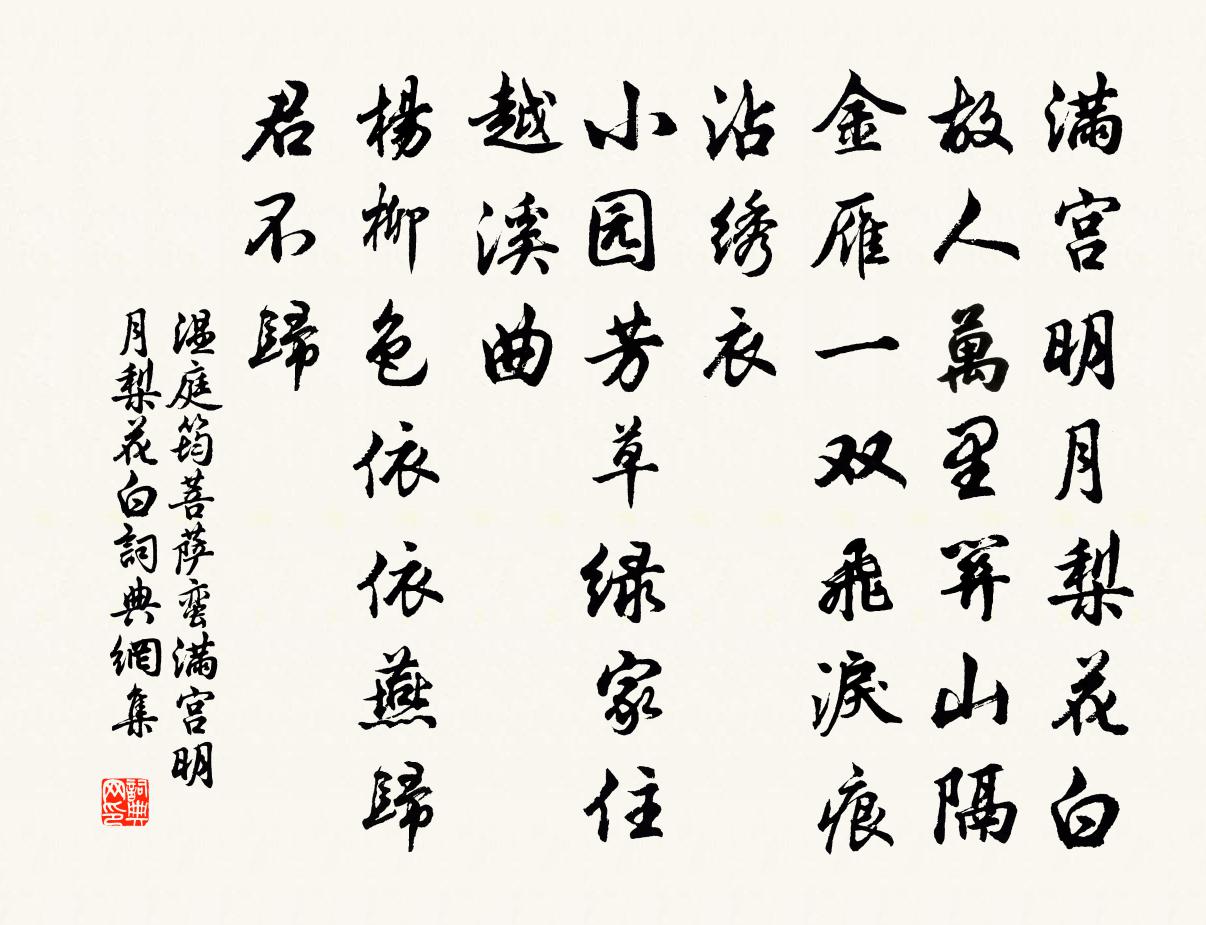 满宫明月梨花白
故人萬里関山隔
金雁一双飛淚痕
沾绣衣
小园芳草绿家住
越溪曲
楊柳色依依燕歸
君不歸
温庭筠菩萨蛮满宫明
月梨花白詞典網集
詞典网印